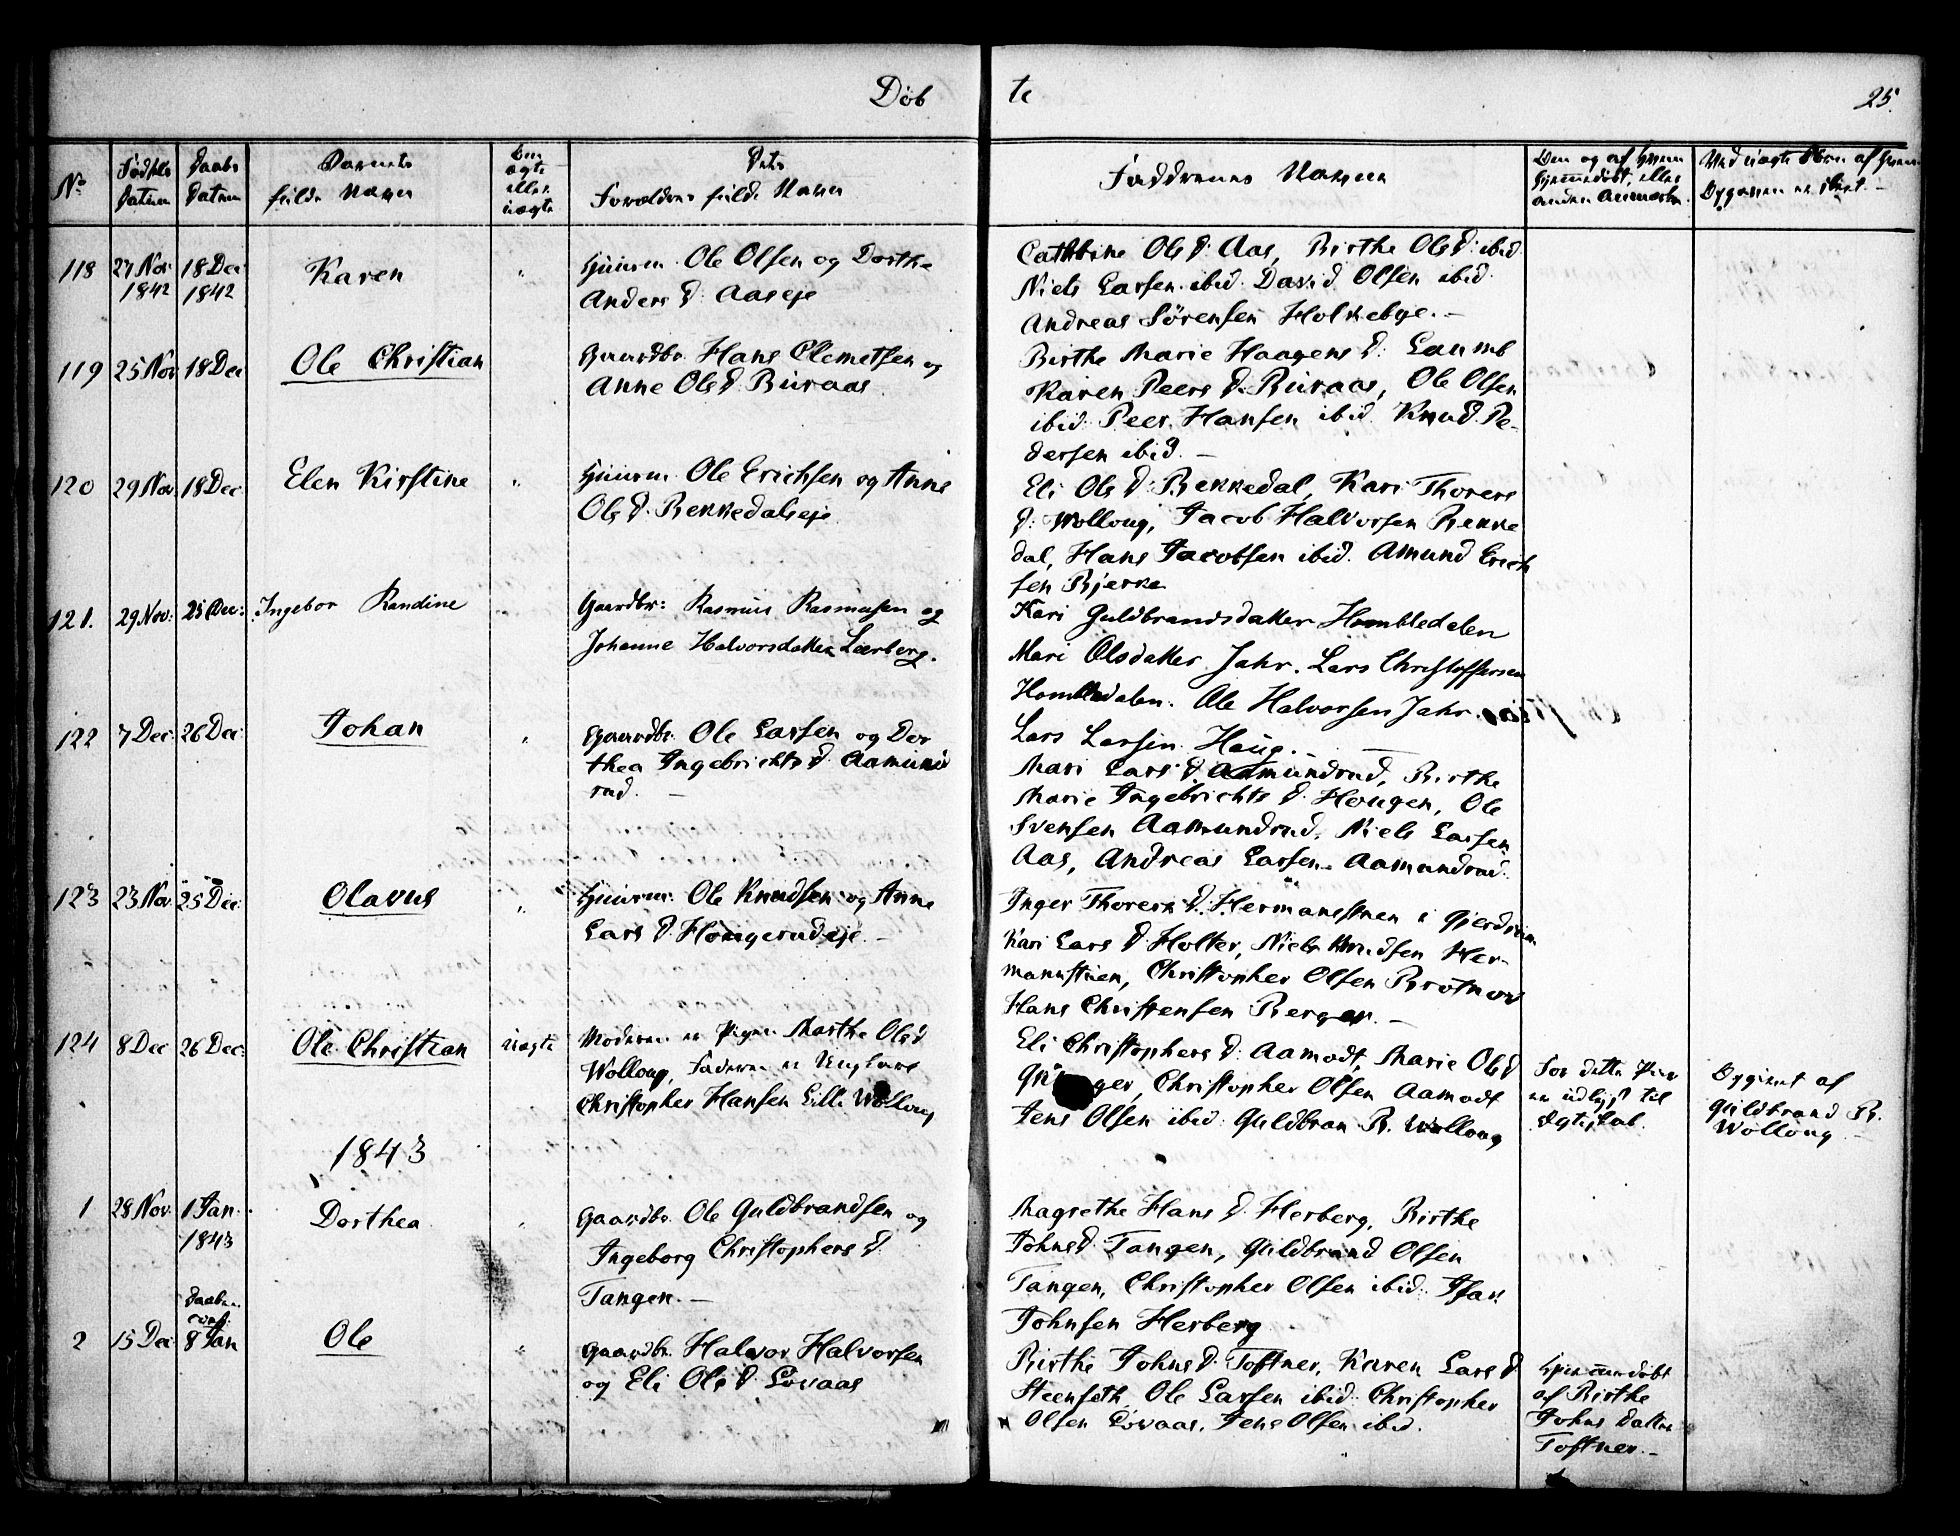 Døb te 25.
No
Fødsels Datum
Daabs Datum
Barnets fulde Navn
Om ægte eller uægte
Dets Forældres fulde Navn
Faddernes Navne
118 27 Nov 1842 18 Dec 1842 Karen "
Huusm. Ole Olsen og Dorthe
Anders D. Aaseje
Cathrine Ols D. Aas, Birthe Ols D. ibid
Niels Larsen ibid. David Olsen ibid.
Andreas Sørensen Holkebye. –
119 25 Nov 18 Dec Ole Christian
Gaardbr. Hans Clemetsen og
Anne Ols D. Buraas
Birthe Marie Haagens D. Laumb
Karen Peers D. Buraas, Ole Olsen
ibid. Peer Hansen ibid. Knud Pe-
dersen ibid. –
120 29 Nov 18 Dec Elen Kirstine "
Huusm. Ole Erichsen og Anne
Ols D. Bekkedalseje
Eli Ols D. Bekkedal, Kari Thorers
D. Wolloug, Jacob Halvorsen Bekke
dal, Hans Jacobsen ibid. Amund Erich
sen Bjerke
121. 29 Nov: 25 Dec: Ingebor Randine "
Gaardbr: Rasmus Rasmusen og
Johanne Halvorsdatter Lærberg.
Kari Guldbrandsdatter Hombledalen
Mari Olsdatter Jahr. Lars Christoffersen
Hombledalen. Ole Halvorsen Jahr.
Lars Larsen Haug. –
122 7 Dec. 26 Dec Johan "
Gaardbr. Ole Larsen og Dor
thea Ingebrichts D. Aamund
rud. –
Mari Lars D. Aamundrud, Birthe
Marie Ingebrichts D. Hougen, Ole
Svensen Aamundrud, Niels Larsen
Aas, Andreas Larsen Aamundrud.
123 23 Nov. 25 Dec. Olavus "
Huusm. Ole Knudsen og Anne
Lars D. Hougerudeje. –
Inger Thorers D. Hermanstuen i Gjerdrum
Kari Lars D. Holter, Niels Knudsen Her-
manstuen, Christopher Olsen Brotner
Hans Christensen Berger. –
124 8 Dec 26 Dec. Ole Christian uægte
Moderen er Pigen Marthe Ols D
Wolloug, Faderen er Ungkarl
Christopher Hansen Lille Wolloug
Eli Christophers D. Aamodt, Marie Ols D
Christopher Olsen Aamodt
Jens Olsen ibid. Guldbran R. Wolloug
For dette Par
er udlyst til
Ægteskab.
Opgivet af
Guldbrand R.
Wolloug. –
1843
1 28 Nov. 1 Jan. 1843 Dorthea "
Gaardbr. Ole Guldbrandsen og
Ingeborg Christophers D.
Tangen. –
Magrethe Hans D. Herberg, Birthe
Johns D. Tangen, Guldbrand Olsen
Tangen, Christopher Olsen ibid. Isak
Johnsen Herberg
2 15 Dec. Daaben conf. 8 Jan Ole "
Gaardbr. Halvor Halvorsen
og Eli Ols D. Lovaas
Birthe Johns D. Toftner, Karen Lars D.
Steenseth Ole Larsen ibid. Christopher
Olsen Lovaas, Jens Olsen ibid.
Hjemmedøbt
af Birthe
Johns datter
Toftner. –